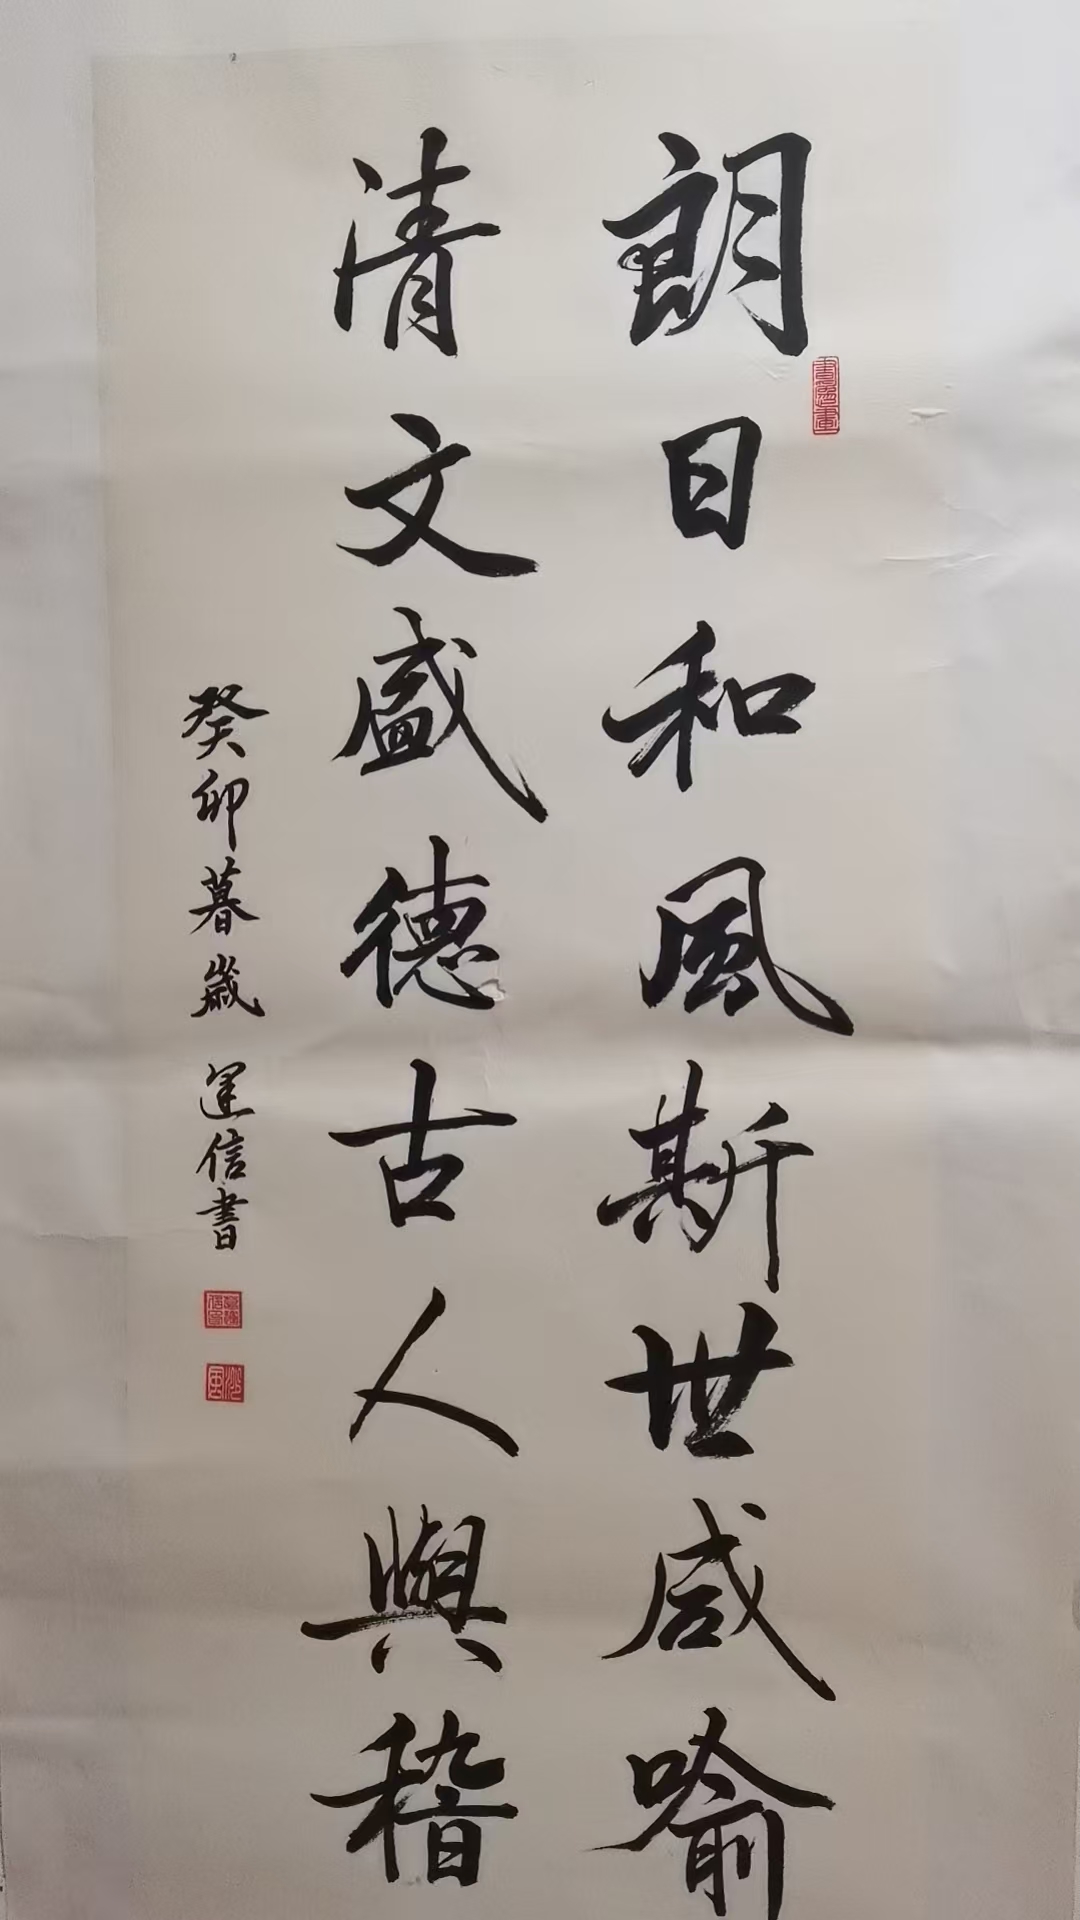 朗日和風斯世咸喻
清文盛德古人與稽
癸卯暮歲 運信書